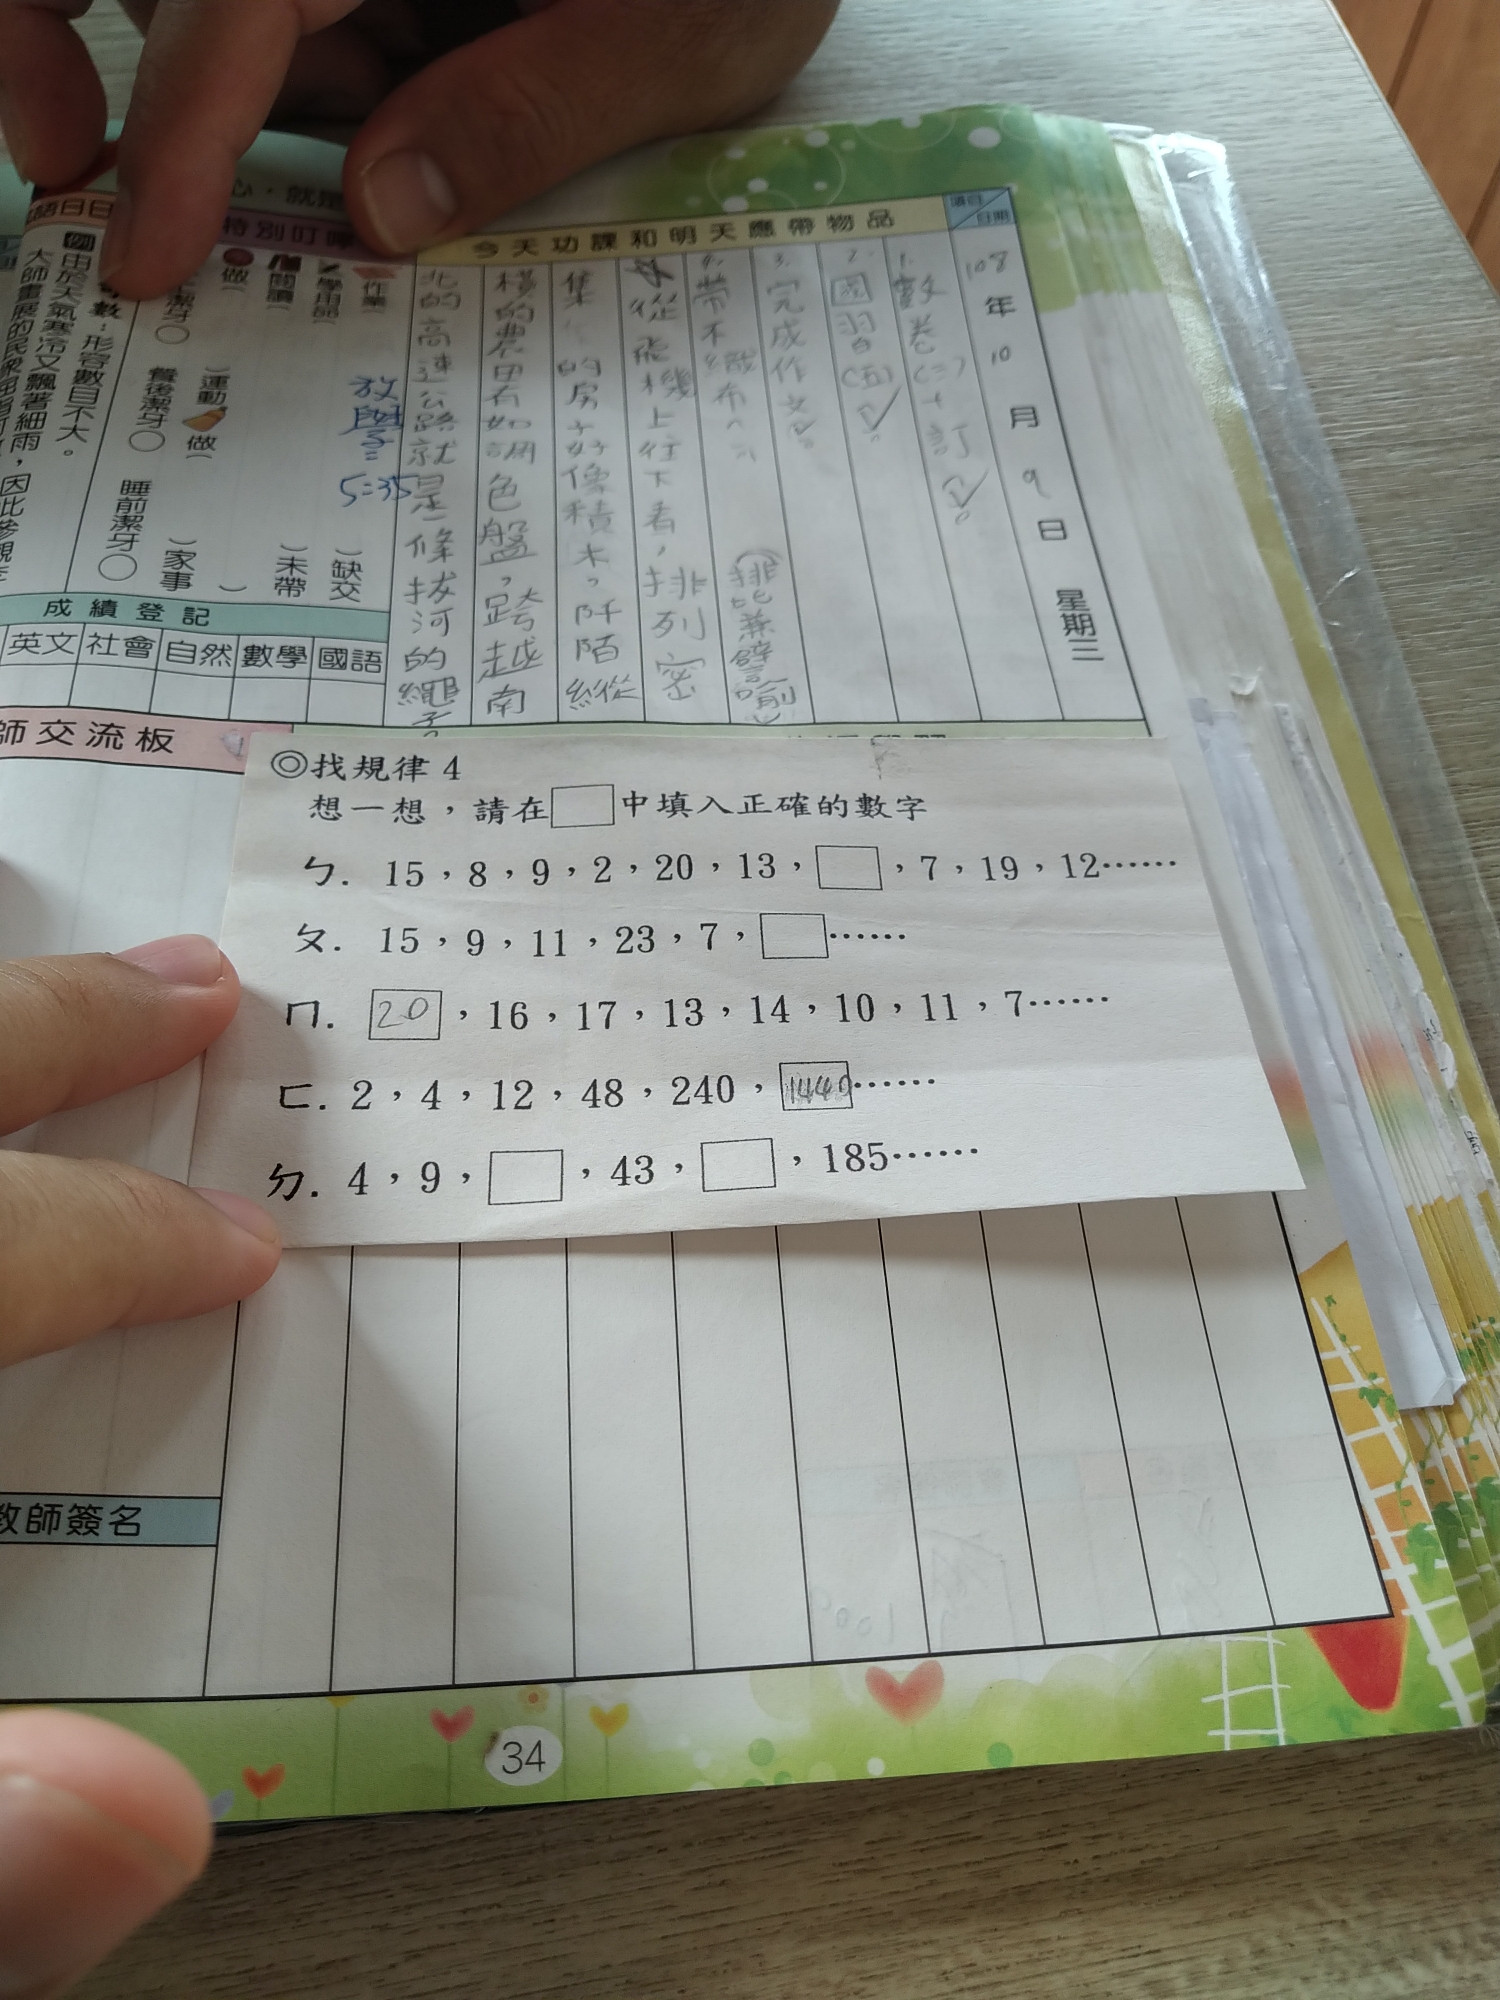 心，就是
項目
日期
今天功課和明天應帶物品
特別叮嚀
108年10月9日 星期三
1. 數卷(二)+訂
2. 國習(五)
3. 完成作文
4. 帶不織布
(排比兼譬喻)
從飛機上往下看，排列密
集的房子好像積木，阡陌縱
橫的農田有如調色盤，跨越南
北的高速公路就是一條拔河的繩子。
作業 )缺交
學用品 )未帶
閱讀
做( )
運動 做( )家事
潔牙○ 餐後潔牙○ 睡前潔牙○
放學=
5=35
數：形容數目不大。
例由於天氣寒冷又飄著細雨，因此參觀
大師畫展的民眾
成績登記
英文 社會 自然 數學 國語
師交流板
◎找規律 4
想一想，請在□中填入正確的數字
ㄅ. 15，8，9，2，20，13，□，7，19，12……
ㄆ. 15，9，11，23，7，□……
ㄇ. 20，16，17，13，14，10，11，7……
ㄈ. 2，4，12，48，240，1440……
ㄉ. 4，9，□，43，□，185……
教師簽名
34